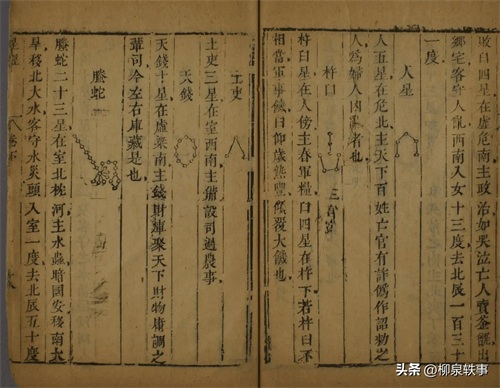 敗臼四星在虛危南主政治如哭泣亡人賣釜甑出
鄉宅客守人飢西南入女十三度去北辰一百三十
一度
人星
人五星在危北主天下百姓亡官有詐偽作詔勅之
人為婦人內亂者也
杵臼
杵臼星在人傍主舂軍糧臼四星在杵下若杵臼不
相當軍事饑臼仰歲熟豐覆大饑也
土吏
土吏三星在室西南主備設司過農事
天錢
天錢十星在虛梁南主錢財庫聚天下財物庸調之
輩司冷左右庫藏是也
螣蛇
螣蛇二十三星在室北枕河主水蟲暗國安移南大
旱移北大水客守水災頭入室一度去北辰五十度
頭条 @柳泉轶事